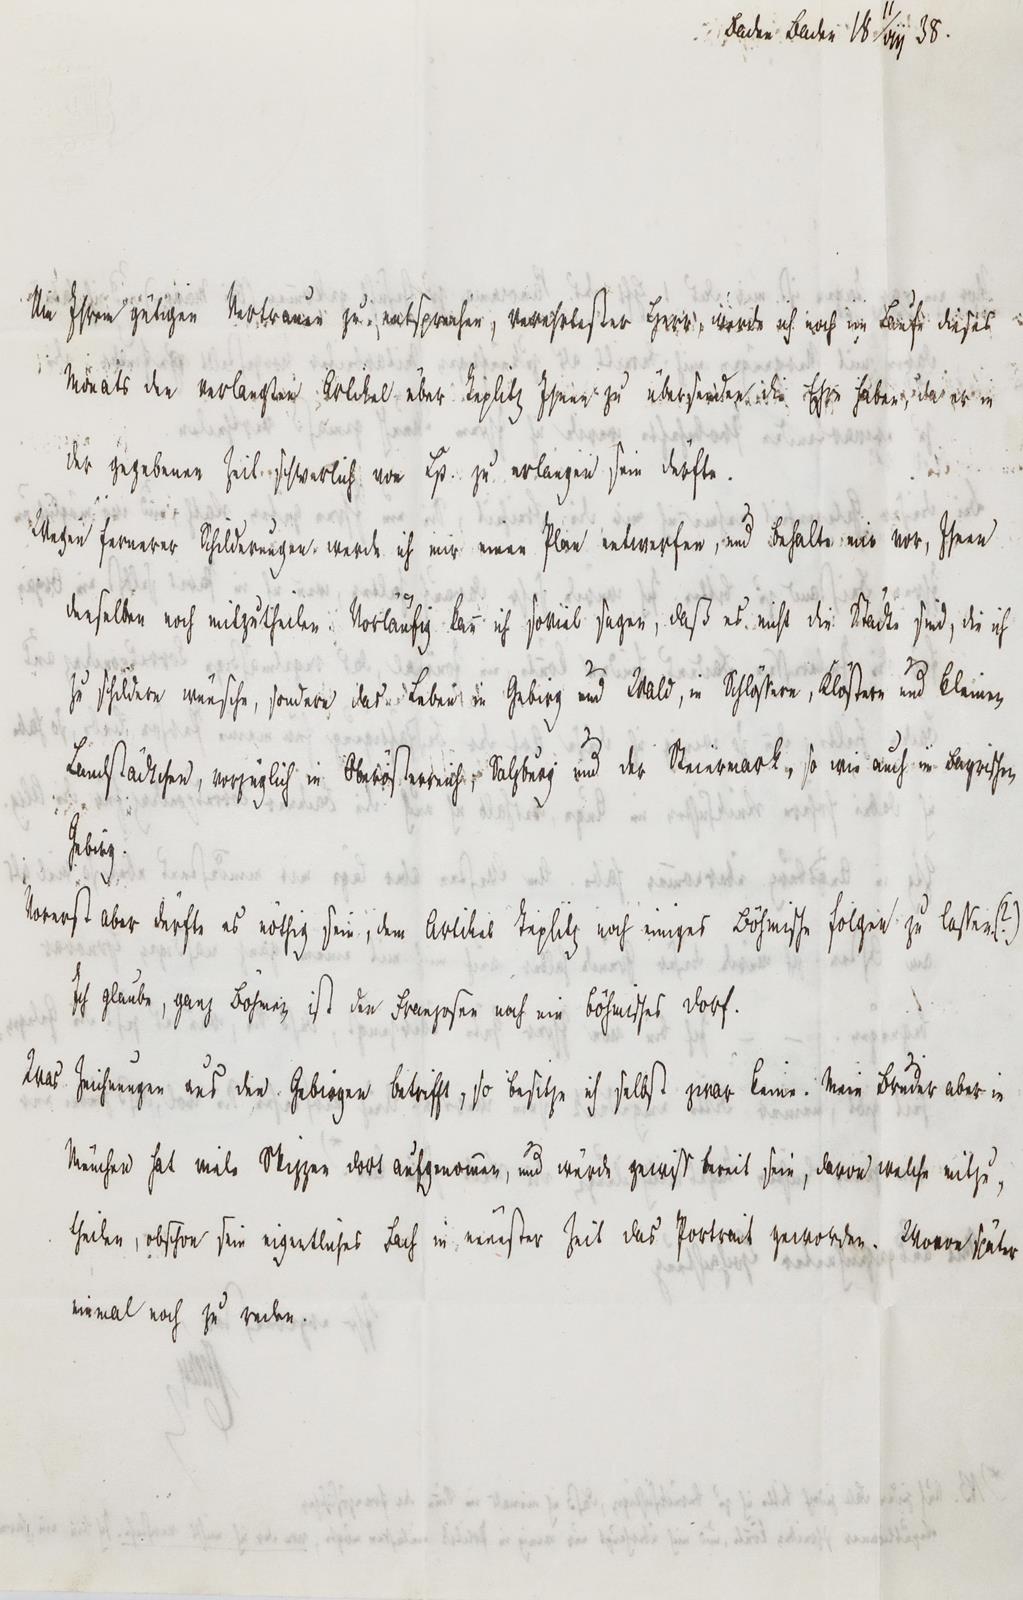 Baden Baden 18 11/VII 38.
Um Ihrem gütigen Vertrauen zu entsprechen, verehrtester Herr, werde ich noch im Laufe dieses
Monats den verlangten Artikel über Teplitz Ihnen zu übersenden die Ehre haben, da er in
der gegebenen Zeit schwerlich von zu erlangen sein dürfte.
Wegen fernerer Schilderungen werde ich mir einen Plan entwerfen, und behalte mir vor, Ihnen
denselben noch mitzutheilen. Vorläufig kan̄ ich soviel sagen, daß es nicht die Städte sind, die ich
zu schildern wünsche, sondern das Leben in Gebirg und Wald, in Schlössern, Klöstern und kleinen
Landstädtchen, vorzüglich in Oberösterreich, Salzburg und der Steiermark, so wie auch im Bayrischen
Gebirg.
Vorerst aber dürfte es nöthig sein, dem Artikel Teplitz noch einiges Böhmische folgen zu lassen(?)
Ich glaube, ganz Böhmen ist den Franzosen noch ein böhmisches Dorf.
Was Zeichnungen aus den Gebirgen betrifft, so besitze ich selbst zwar keine. Mein Bruder aber in
München hat viele Skizzen dort aufgenom̄en, und würde gewiss bereit sein, davon welche mitzu-
theilen, obschon sein eigentliches Fach in neuester Zeit das Portrait geworden. Wovon später
einmal noch zu reden.